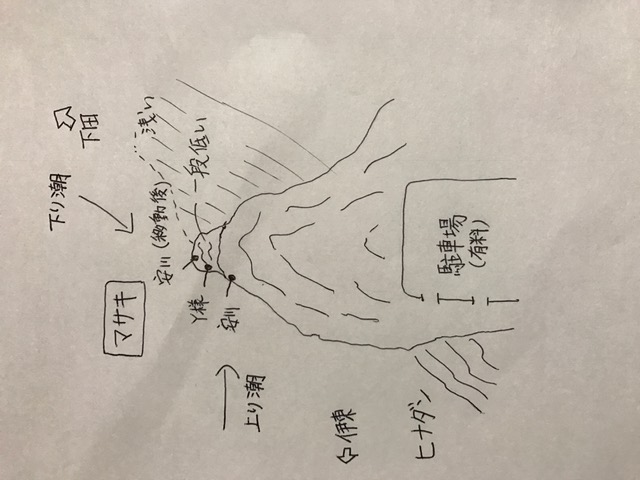 下り潮
下田
マサキ
浅い
安川(移動後)
一段低い
Y様
安川
上り潮
伊東
ヒナダン
駐車場
(有料)